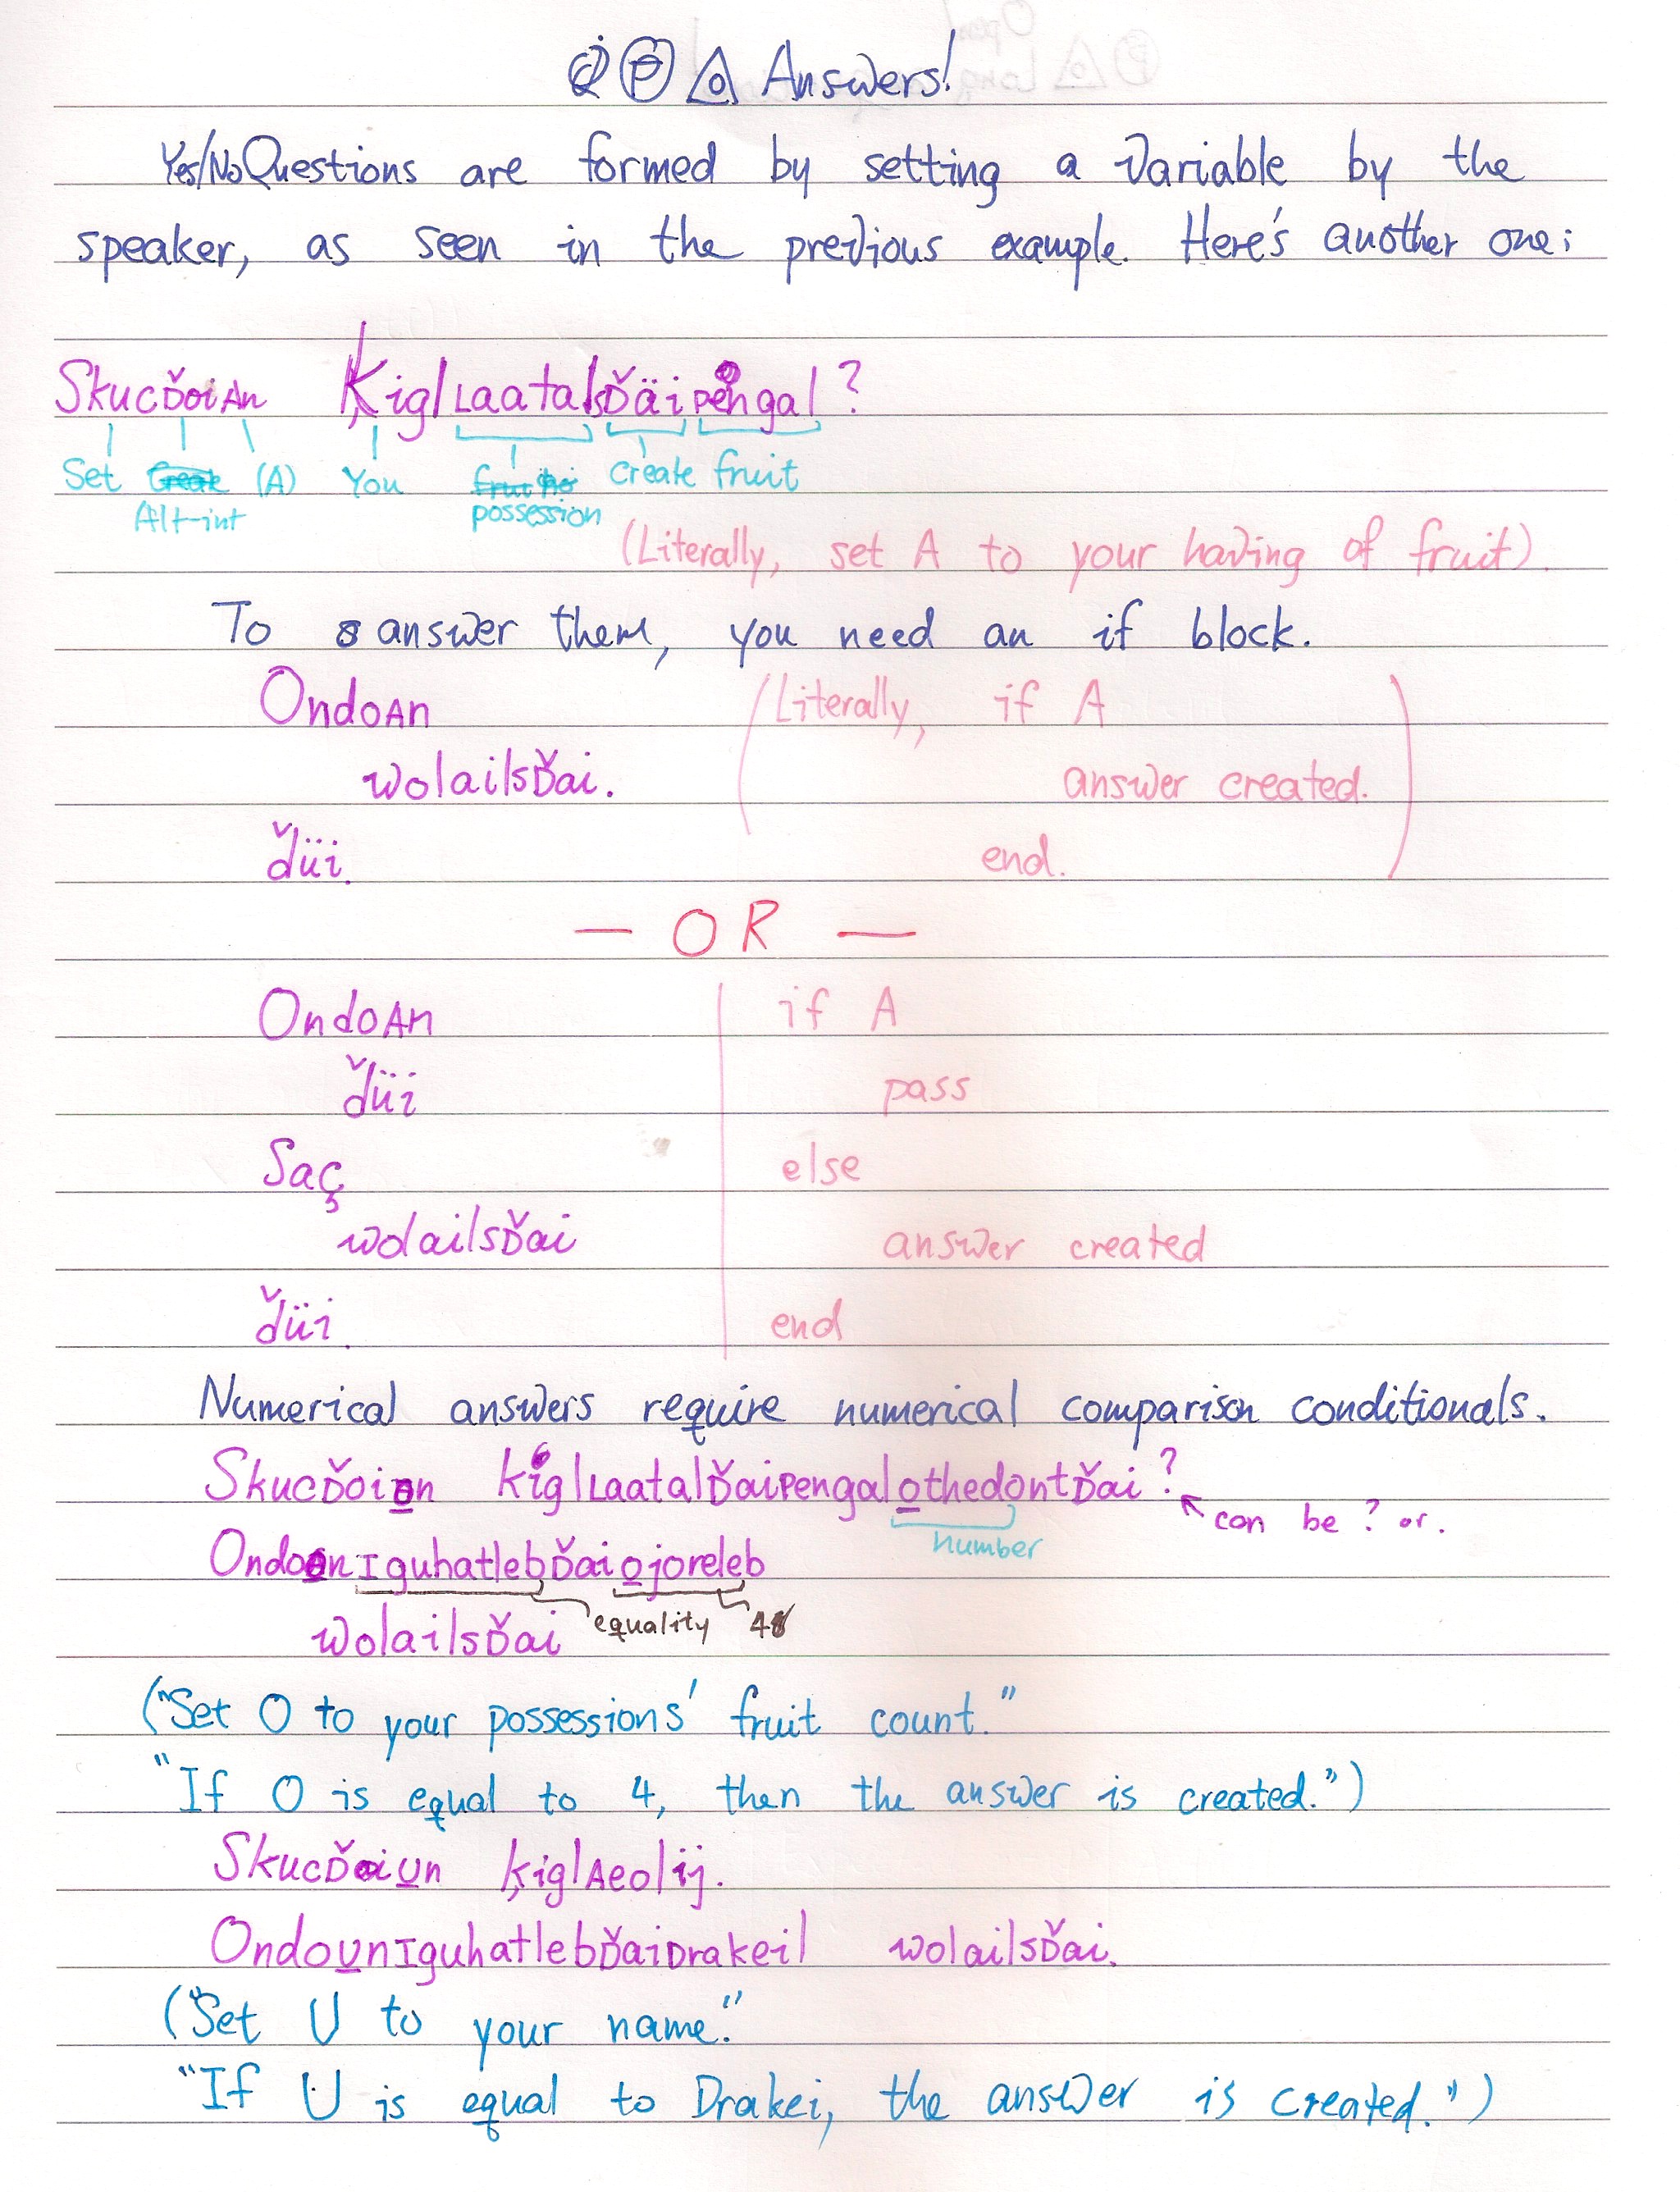 Answers!
Yes/No Questions are formed by setting a variable by the
speaker, as seen in the previous example. Here's another one:
SkucĎoiAn ĶiglLaatalsĎäiPengal?
Set (A) You Create fruit
Alt-int possession
(Literally, set A to your having of fruit).
To answer them, you need an if block.
OndoAn (Literally, if A
wolailsĎai. answer created.
ďüi. end.)
— OR —
OndoAn if A
ďüi pass
Saç else
wolailsĎai answer created
ďüi. end
Numerical answers require numerical comparison conditionals.
SkucĎoiOn kiglLaatalĎaiPengalOthedontĎai?
can be ? or .
number
OndoOnIguhatlebĎaiOjoreleb
equality 4
wolailsĎai
("Set O to your possessions' fruit count."
"If O is equal to 4, then the answer is created.")
SkucĎoiUn ķiglAeolij.
OndoUnIguhatlebĎaiDrakeil wolailsĎai.
("Set U to your name."
"If U is equal to Drakei, the answer is created.")